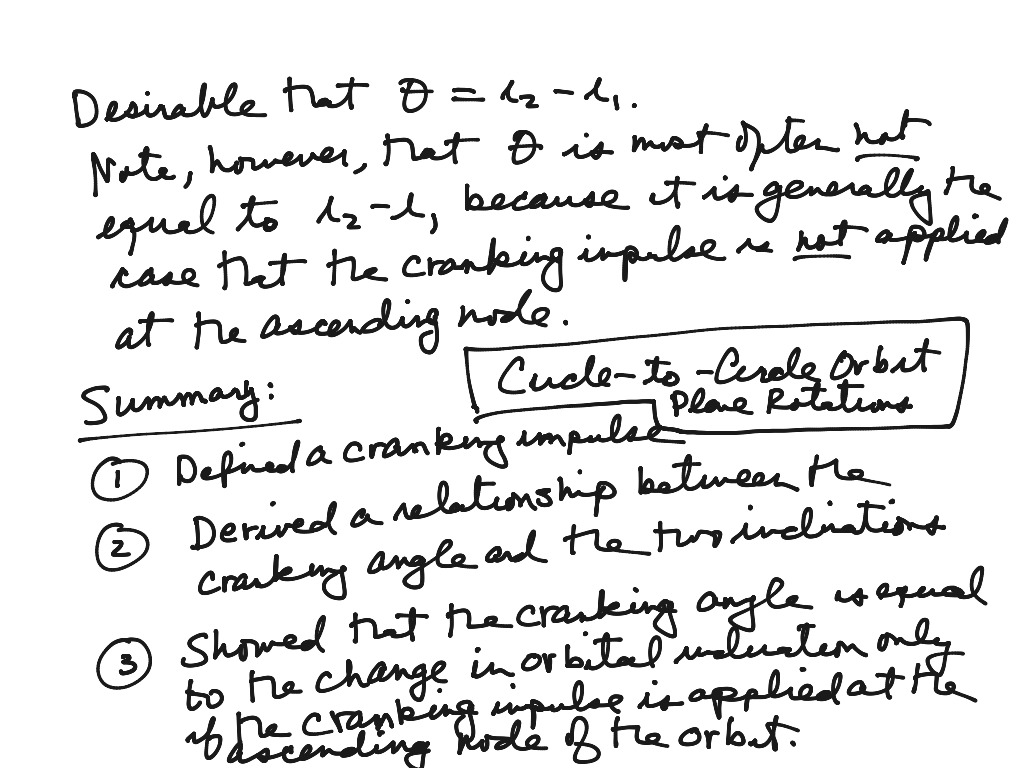 Desirable that θ = i₂ - i₁.
Note, however, that θ is most often not
equal to i₂ - i₁ because it is generally the
case that the cranking impulse is not applied
at the ascending node.
Circle-to-Circle Orbit
Plane Rotations
Summary:
① Defined a cranking impulse
② Derived a relationship between the
cranking angle and the two inclinations
③ Showed that the cranking angle is equal
to the change in orbital inclination only
if the cranking impulse is applied at the
ascending node of the orbit.